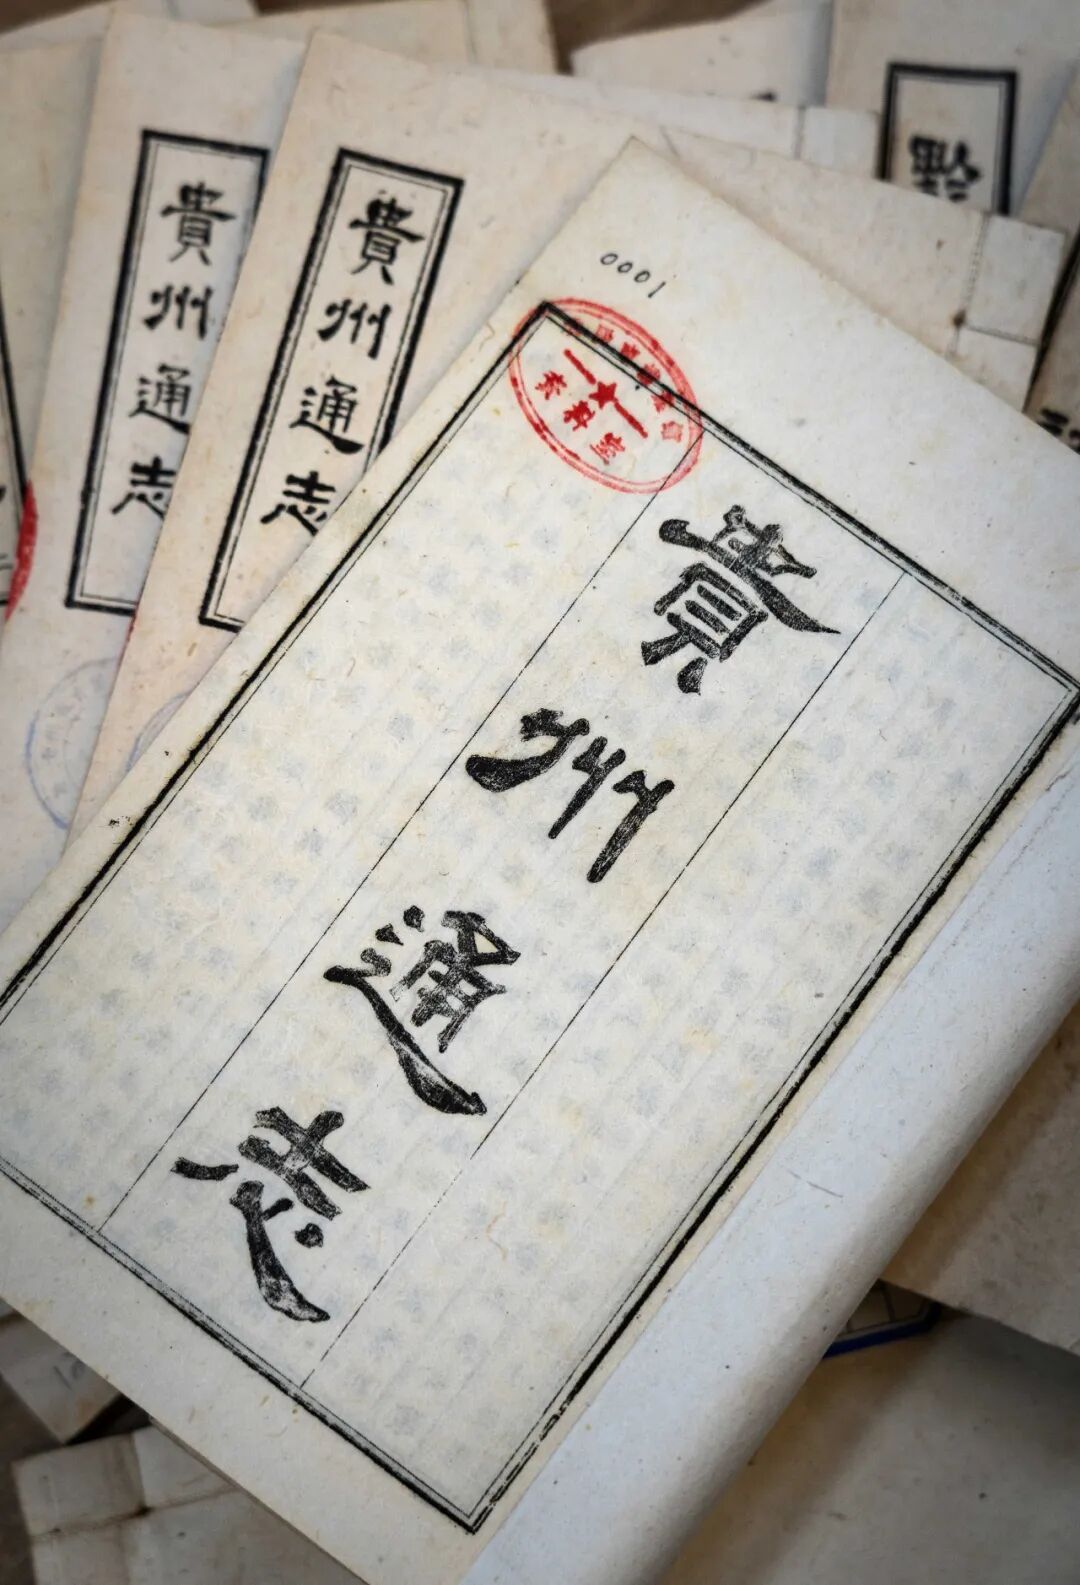 貴州通志
貴州通志
黔
0001
資料室
貴州通志